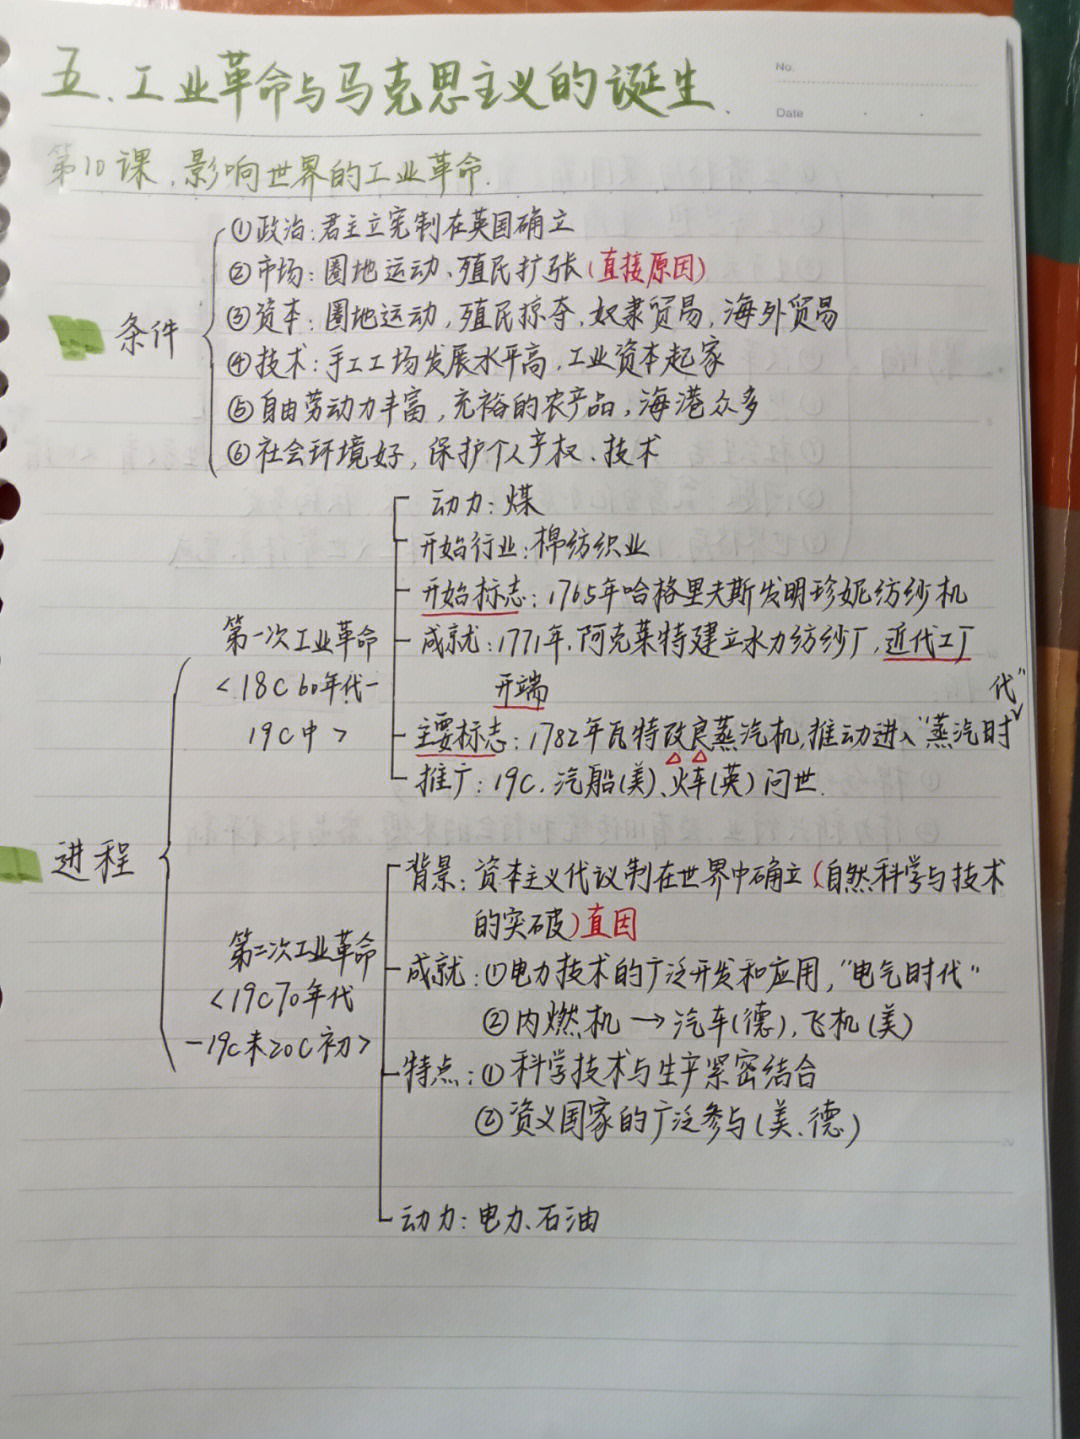 五、工业革命与马克思主义的诞生.
No.
Date
第10课.影响世界的工业革命.
条件
①政治:君主立宪制在英国确立
②市场:圈地运动、殖民扩张(直接原因)
③资本:圈地运动,殖民掠夺,奴隶贸易,海外贸易
④技术:手工工场发展水平高,工业资本起家
⑤自由劳动力丰富,充裕的农产品,海港众多
⑥社会环境好,保护个人产权、技术
进程
第一次工业革命
<18C60年代-
19C中>
动力:煤
开始行业:棉纺织业
开始标志:1765年哈格里夫斯发明珍妮纺纱机
成就:1771年.阿克莱特建立水力纺纱厂,近代工厂
开端
主要标志:1782年瓦特改良蒸汽机,推动进入"蒸汽时代"
推广:19C.汽船(美)、火车(英)问世.
第二次工业革命
<19C70年代
-19C末20C初>
背景:资本主义代议制在世界中确立(自然科学与技术
的突破)直因
成就:①电力技术的广泛开发和应用,"电气时代"
②内燃机→汽车(德),飞机(美)
特点:①科学技术与生产紧密结合
②资义国家的广泛参与(美、德)
动力:电力、石油